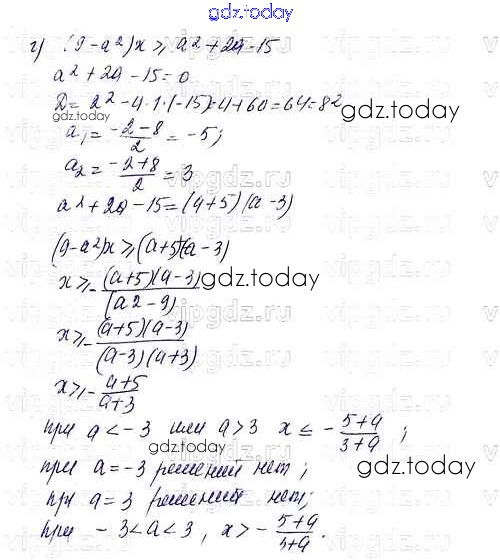 gdz.today
г) (9-a²)x ≥ a²+2a-15
a²+2a-15=0
D=2²-4·1·(-15)=4+60=64=8²
gdz.today
a₁=(-2-8)/2=-5;
a₂=(-2+8)/2=3
a²+2a-15=(a+5)(a-3)
(9-a²)x≥(a+5)(a-3)
x≥-(a+5)(a-3)/(a2-9)
gdz.today
x≥-(a+5)(a-3)/(a-3)(a+3)
x≥-(a+5)/(a+3)
при a<-3 или a>3 x≤-(5+a)/(3+a);
gdz.today
при a=-3 решений нет;
gdz.today
при a=3 решений нет;
при -3<a<3, x>-(5+a)/(3+a).
gdz.today